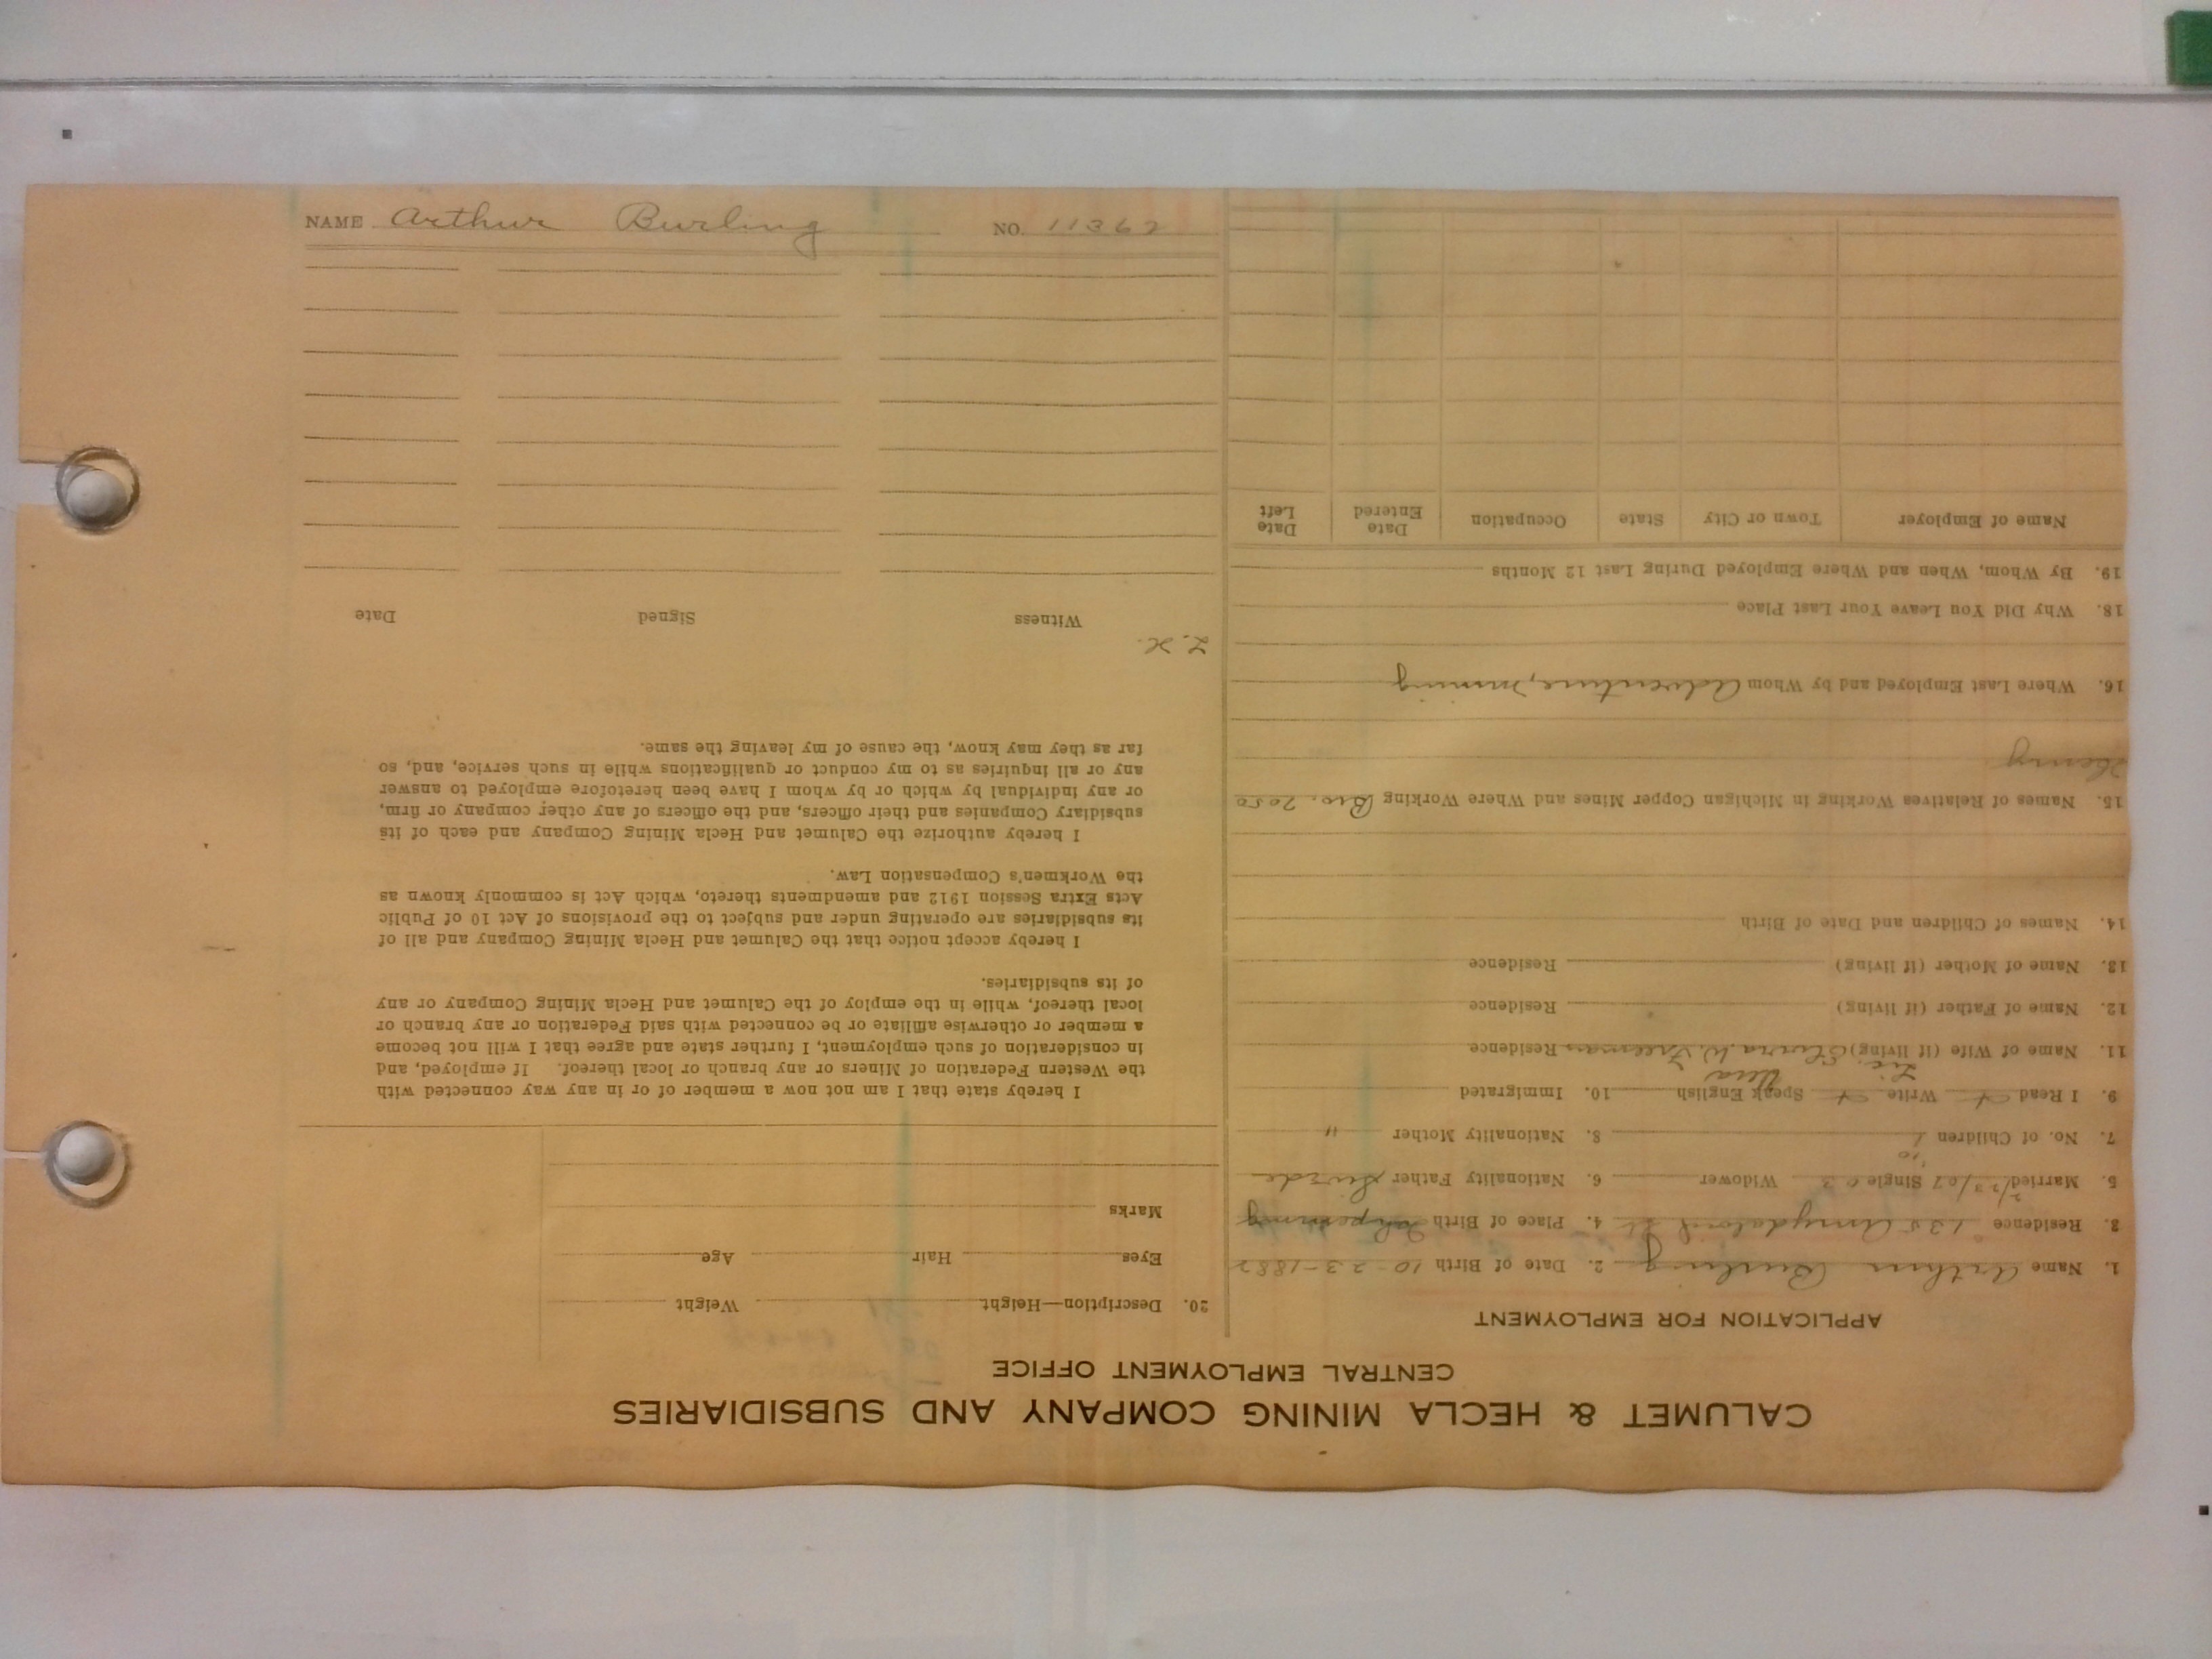 CALUMET & HECLA MINING COMPANY AND SUBSIDIARIES
CENTRAL EMPLOYMENT OFFICE
APPLICATION FOR EMPLOYMENT
1. Name Arthur Burling 2. Date of Birth 10-23-1882
3. Residence 135 St. 4. Place of Birth Ishpeming
5. Married 2/23/07 Single Widower 6. Nationality Father Swede
7. No. of Children 1 8. Nationality Mother "
9. I Read Write Speak English 10. Immigrated
11. Name of Wife (if living) Residence
12. Name of Father (if living) Residence
13. Name of Mother (if living) Residence
14. Names of Children and Date of Birth
15. Names of Relatives Working in Michigan Copper Mines and Where Working Bro. 2050
Henry
16. Where Last Employed and by Whom Adventure, mining
18. Why Did You Leave Your Last Place
19. By Whom, When and Where Employed During Last 12 Months
Name of Employer Town or City State Occupation Date Entered Date Left
20. Description—Height Weight
Eyes Hair Age
Marks
I hereby state that I am not now a member of or in any way connected with
the Western Federation of Miners or any branch or local thereof. If employed, and
in consideration of such employment, I further state and agree that I will not become
a member or otherwise affiliate or be connected with said Federation or any branch or
local thereof, while in the employ of the Calumet and Hecla Mining Company or any
of its subsidiaries.
I hereby accept notice that the Calumet and Hecla Mining Company and all of
its subsidiaries are operating under and subject to the provisions of Act 10 of Public
Acts Extra Session 1912 and amendments thereto, which Act is commonly known as
the Workmen's Compensation Law.
I hereby authorize the Calumet and Hecla Mining Company and each of its
subsidiary Companies and their officers, and the officers of any other company or firm,
or any individual by which or by whom I have been heretofore employed to answer
any or all inquiries as to my conduct or qualifications while in such service, and, so
far as they may know, the cause of my leaving the same.
Witness Signed Date
NAME Arthur Burling NO. 11362